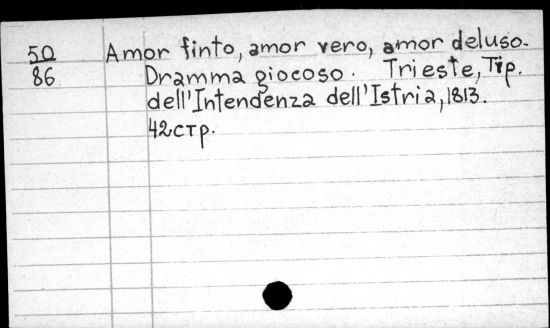 50 Amor finto, amor vero, amor deluso.
86 Dramma giocoso. Trieste, Tip.
dell'Intendenza dell'Istria, 1813.
42стр.